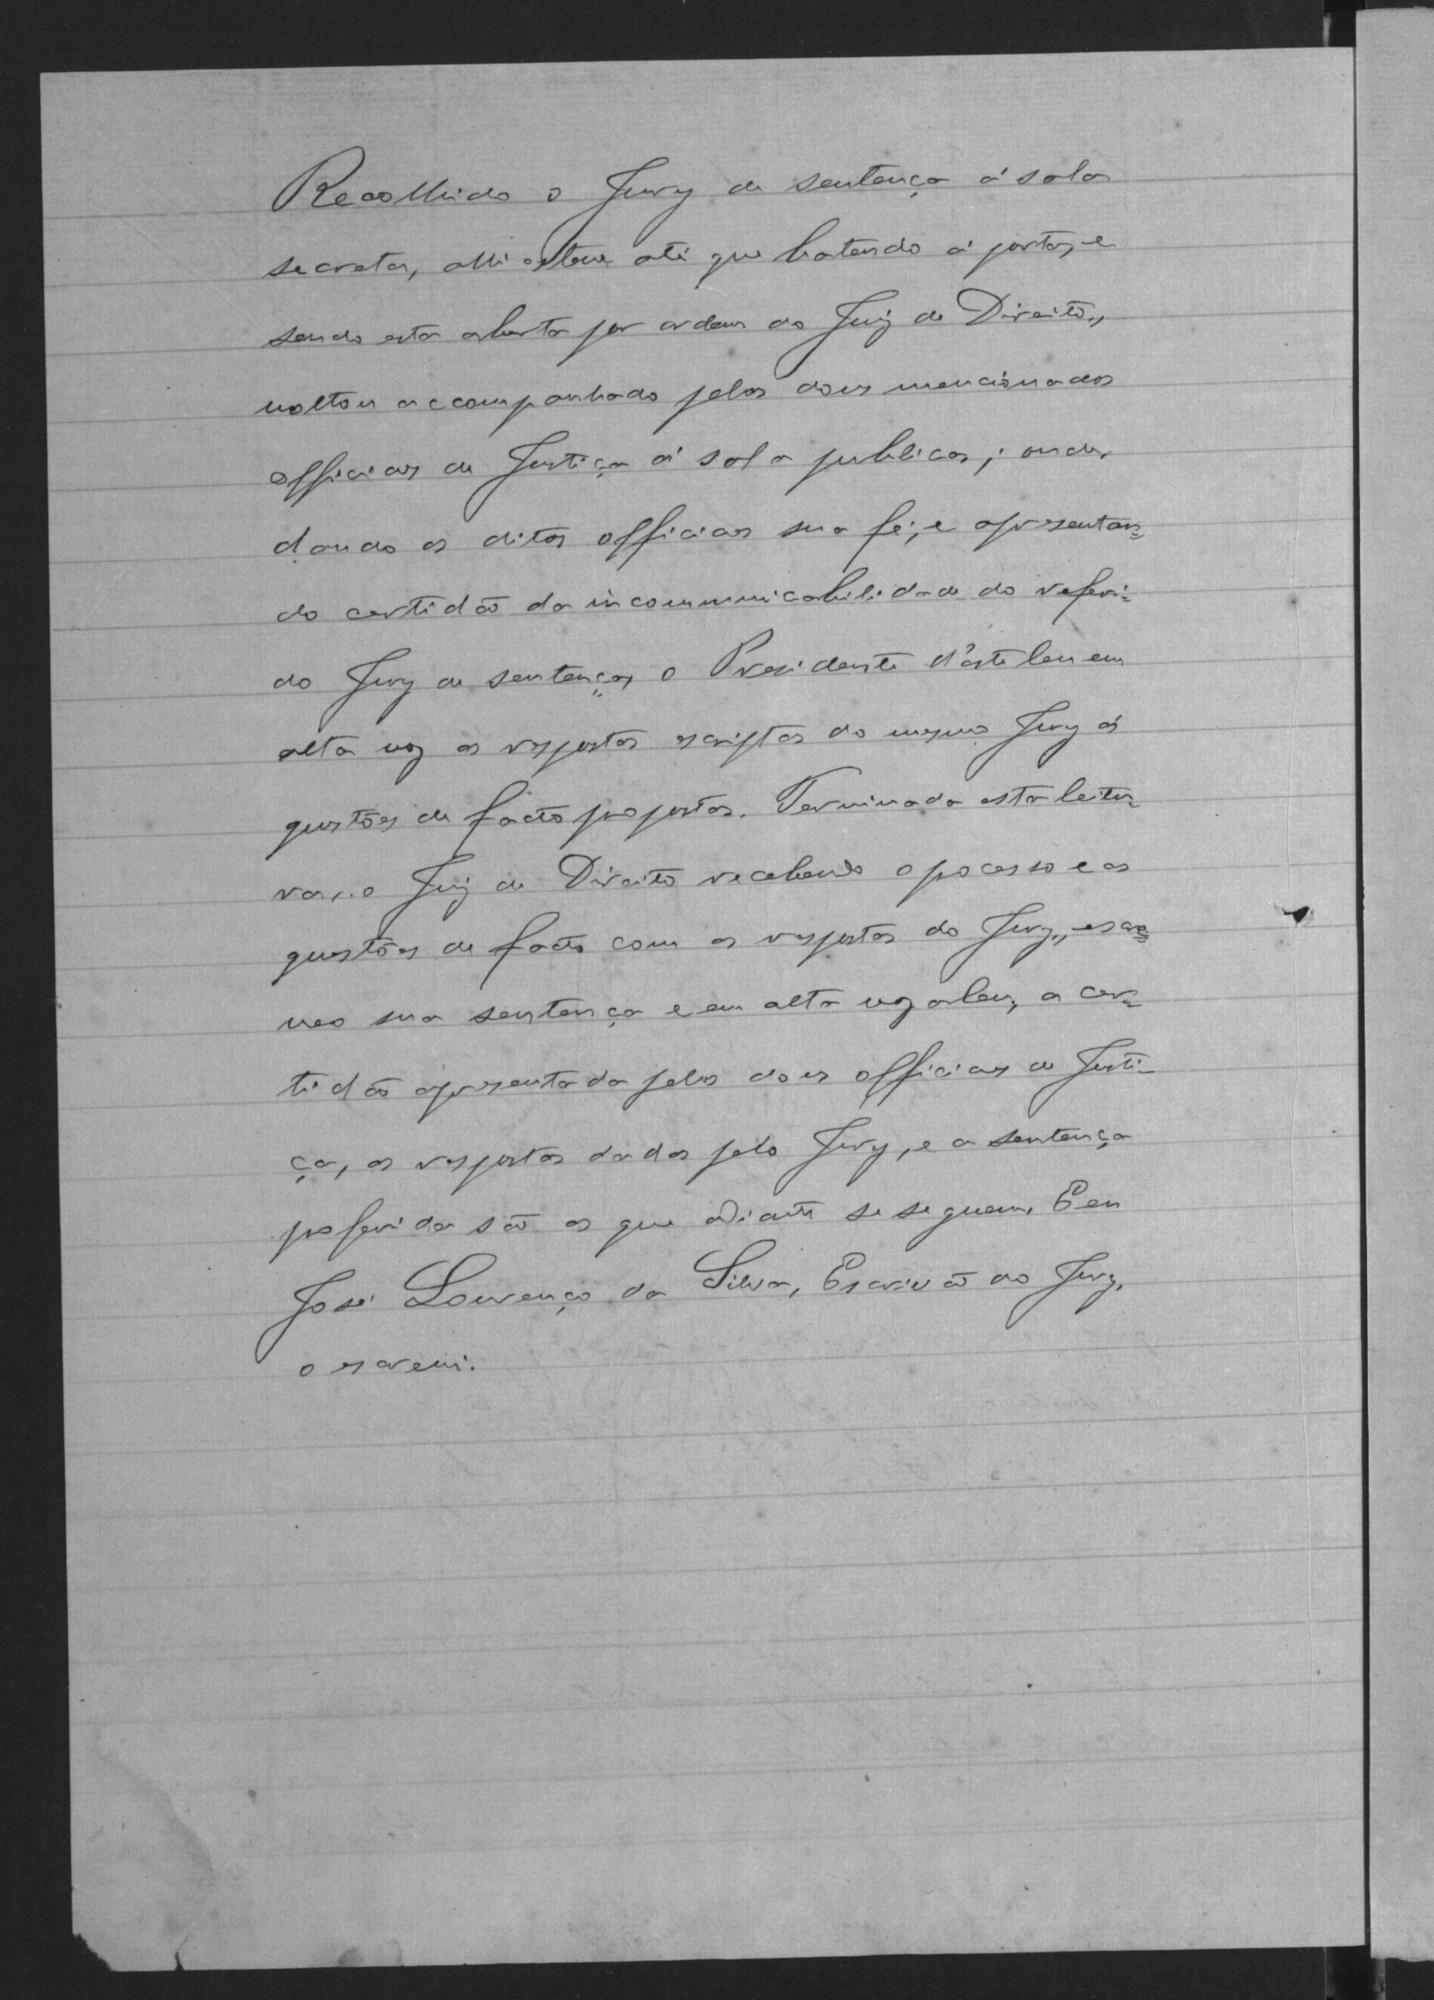 Recolhido o Jury de sentença á sala
secreta, alli esteve até que batendo á porta, e
sendo esta aberta por ordem do Juiz de Direito,
voltou accompanhado pelos dous mencionados
officiaes de Justiça á sala publica; onde,
dando os ditos officiaes sua fé, e apresentan=
do certidão da incommunicabilidade do referi=
do Jury de sentença, o Presidente d'este leu em
alta voz as respostas escriptas do mesmo Jury ás
questões de facto propostas. Terminada esta leitu=
ra, o Juiz de Direito recebendo o pocesso e as
questões de facto com as respostas do Jury, escre=
veo sua sentença e em alta voz a leu; a cer=
tidão apresentada pelos dous officiaes de Justi-
ça, as respostas dadas pelo Jury, e a sentença
proferida são as que adiante se seguem. E eu
José Lourenço da Silva, Escrivão do Jury,
o escrevi.